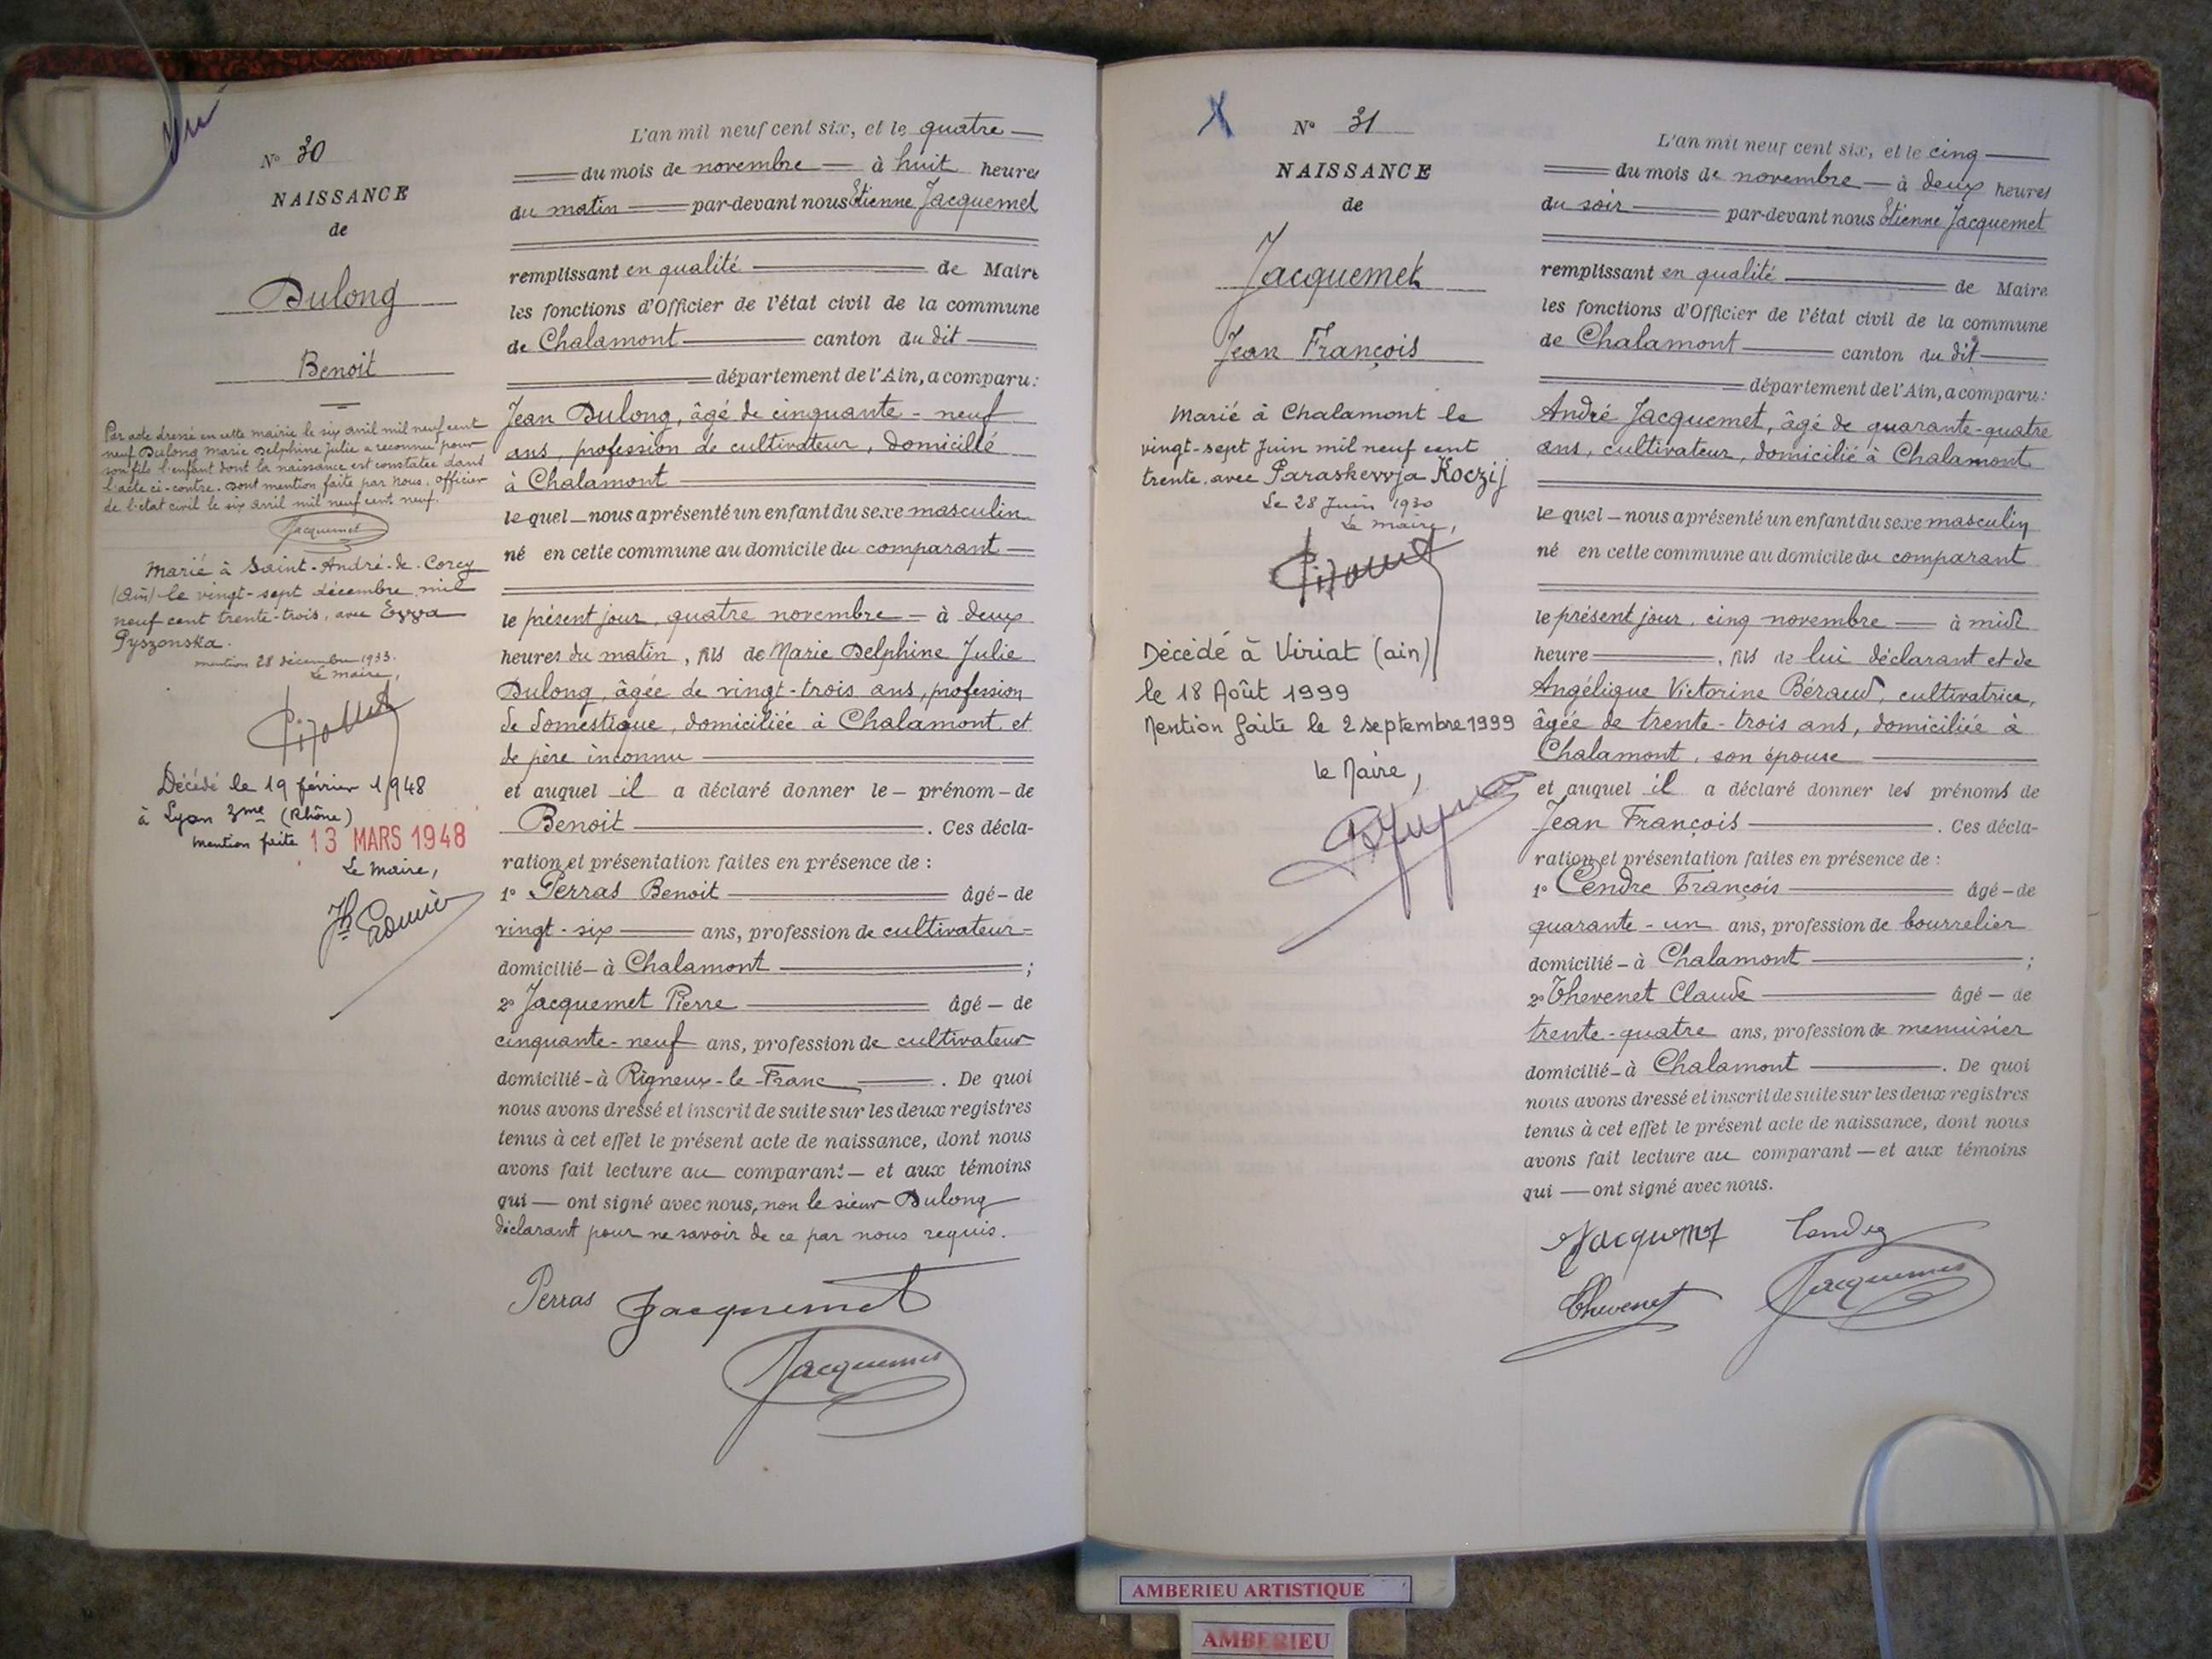 Vu
N° 30
NAISSANCE
de
Dulong
Benoit
Par acte dressé en cette mairie le six avril mil neuf cent
neuf Dulong Marie Delphine Julie a reconnu pour
son fils l'enfant dont la naissance est constatée dans
l'acte ci-contre. Dont mention faite par nous, officier
de l'état civil le six avril mil neuf cent neuf.
Jacquemet
Marié à Saint-André-de-Corcy
(Ain) le vingt-sept décembre mil
neuf cent trente-trois, avec Ewa
Pyszonska.
mention 28 décembre 1933.
Le maire,
Décédé le 19 février 1948
à Lyon 3me (Rhône)
mention faite 13 MARS 1948
Le Maire,
L'an mil neuf cent six, et le quatre
du mois de novembre à huit heures
du matin par-devant nous Etienne Jacquemet
remplissant en qualité de Maire
les fonctions d'Officier de l'état civil de la commune
de Chalamont canton du dit
département de l'Ain, a comparu:
Jean Dulong, âgé de cinquante-neuf
ans, profession de cultivateur, domicilié
à Chalamont
lequel nous a présenté un enfant du sexe masculin
né en cette commune au domicile du comparant
le présent jour, quatre novembre à deux
heures du matin, fils de Marie Delphine Julie
Dulong, âgée de vingt-trois ans, profession
de domestique, domiciliée à Chalamont et
de père inconnu
et auquel il a déclaré donner le prénom de
Benoit. Ces décla-
ration et présentation faites en présence de :
1° Perras Benoit âgé de
vingt-six ans, profession de cultivateur
domicilié à Chalamont ;
2° Jacquemet Pierre âgé de
cinquante-neuf ans, profession de cultivateur
domicilié à Rigneux-le-Franc. De quoi
nous avons dressé et inscrit de suite sur les deux registres
tenus à cet effet le présent acte de naissance, dont nous
avons fait lecture au comparant et aux témoins
qui ont signé avec nous, non le sieur Dulong
déclarant pour ne savoir de ce par nous requis.
Perras Jacquemet
Jacquemet
N° 31
NAISSANCE
de
Jacquemet
Jean François
Marié à Chalamont le
vingt-sept Juin mil neuf cent
trente, avec Paraskewja Koczij
Le 28 Juin 1930
Le maire,
Décédé à Viriat (ain)
le 18 Août 1999
Mention faite le 2 septembre 1999
le Maire,
L'an mil neuf cent six, et le cinq
du mois de novembre à deux heures
du soir par-devant nous Etienne Jacquemet
remplissant en qualité de Maire
les fonctions d'Officier de l'état civil de la commune
de Chalamont canton du dit
département de l'Ain, a comparu:
André Jacquemet, âgé de quarante-quatre
ans, cultivateur, domicilié à Chalamont
lequel nous a présenté un enfant du sexe masculin
né en cette commune au domicile du comparant
le présent jour, cinq novembre à midi
heure, fils de lui déclarant et de
Angélique Victorine Béraud, cultivatrice,
âgée de trente-trois ans, domiciliée à
Chalamont, son épouse
et auquel il a déclaré donner les prénoms de
Jean François. Ces décla-
ration et présentation faites en présence de :
1° Cendre François âgé de
quarante-un ans, profession de bourrelier
domicilié à Chalamont ;
2° Thevenet Claude âgé de
trente-quatre ans, profession de menuisier
domicilié à Chalamont. De quoi
nous avons dressé et inscrit de suite sur les deux registres
tenus à cet effet le présent acte de naissance, dont nous
avons fait lecture au comparant et aux témoins
qui ont signé avec nous.
Jacquemet Cendre
Thevenet Jacquemet
AMBERIEU ARTISTIQUE
AMBERIEU